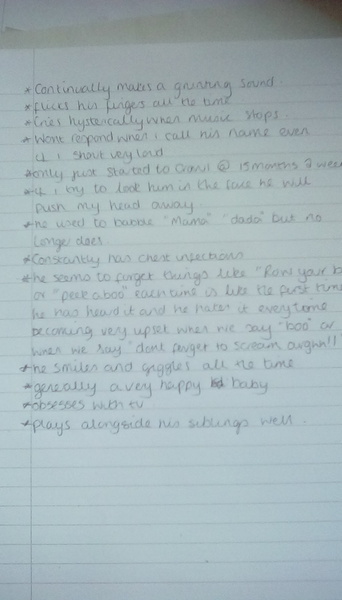 * Continually makes a grunting sound.
* flicks his fingers all the time
* Cries hysterically when music stops.
* Wont respond when i call his name even
if i shout very loud.
* only just started to Crawl @ 15months 2 wee
* if i try to look him in the face he will
push my head away.
* he used to babble "Mama" "dada" but no
longer does.
* Constantly has chest infections
* he seems to forget things like "Row your b
or "peek a boo" each time is like the first time
he has heard it and he hates it every time
becoming very upset when we say "boo" or
when we say "dont forget to scream arghh!!
* he smiles and giggles all the time
* generally a very happy baby
* obsesses with tv
* plays alongside his siblings well.